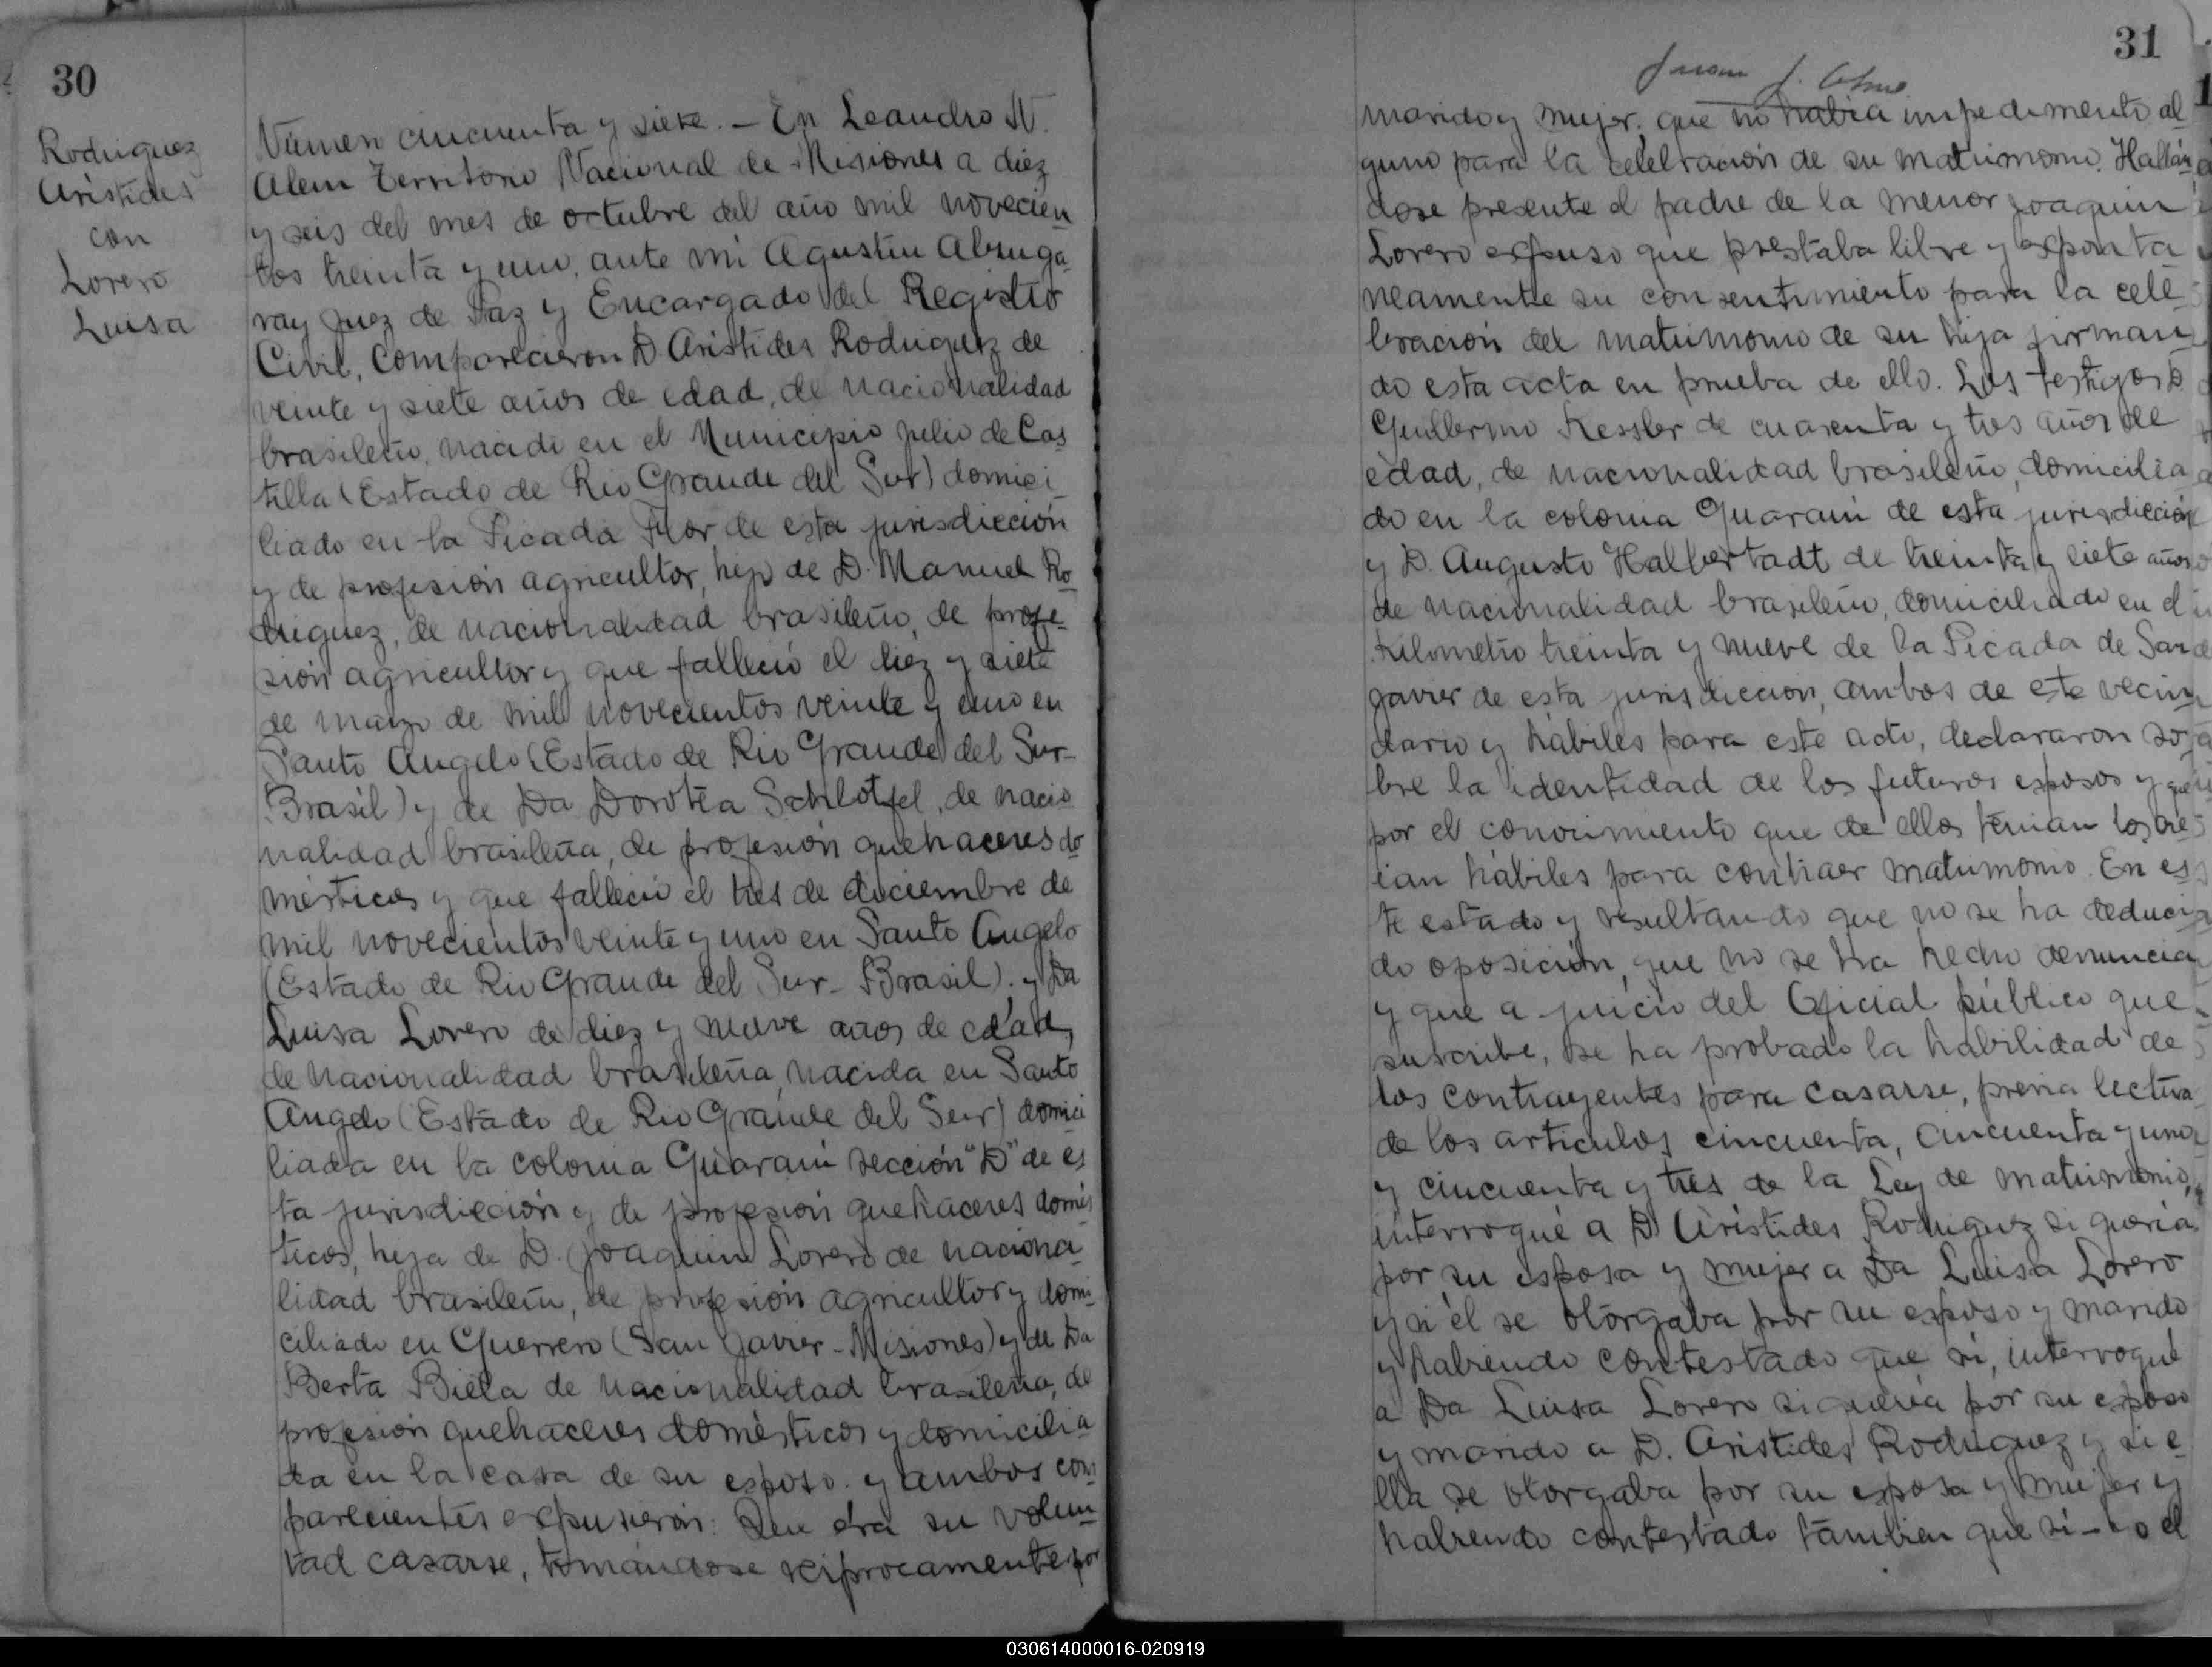 30
Rodriguez
Arístides
con
Lorero
Luisa
Número cincuenta y siete. – En Leandro N.
Alem Territorio Nacional de Misiones a diez
y seis del mes de octubre del año mil novecien
tos treinta y uno, ante mi Agustin Abruga
ray Juez de Paz y Encargado del Registro
Civil, Comparecieron D. Aristides Rodriguez de
veinte y siete años de edad, de nacionalidad
brasileño, nacido en el Municipio Julio de Cas
tilla (Estado de Rio Grande del Sur) domici
liado en la Picada Flor de esta jurisdicción
y de profesión agricultor, hijo de D. Manuel Ro
driguez, de nacionalidad brasileño, de profe-
sión agricultor y que falleció el diez y siete
de marzo de mil novecientos veinte y uno en
Santo Angelo (Estado de Rio Grande del Sur-
Brasil) y de Da Dorotea de nacio
nalidad brasileña, de profesión quehaceres do
mésticos y que falleció el tres de diciembre de
mil novecientos veinte y uno en Santo Angelo
(Estado de Rio Grande del Sur - Brasil). y Da
Luisa Lorero de diez y nueve años de edad,
de nacionalidad brasileña, nacida en Santo
Angelo (Estado de Rio Grande del Sur) domici
liada en la colonia Guaraní sección "D" de es
ta jurisdicción y de profesión quehaceres domés
ticos, hija de D. Joaquin Lorero de naciona-
lidad brasileño, de profesión agricultor y domi-
ciliado en Guerrero (San Javier - Misiones) y de Da
Berta Biela de nacionalidad brasileña, de
profesión quehaceres domésticos y domicilia
da en la casa de su esposo. y ambos com
parecientes expusieron: Que éra su volun
tad casarse, tomándose reciprocamente por
31
Juan J.
marido y mujer, que no habia impedimento al
guno para la celebración de su matrimonio. Hallán
dose presente el padre de la menor Joaquin
Lorero expuso que prestaba libre y exponta
neamente su consentimiento para la cele
bración del matrimonio de su hija firman
do esta acta en prueba de ello. Los testigos D.
Guillermo Kessler de cuarenta y tres años de
edad, de nacionalidad brasileño, domicilia
do en la colonia Guaraní de esta jurisdicción
y D. Augusto Halbertadt de treinta y siete años
de nacionalidad brasileño, domiciliado en el
Kilometro treinta y nueve de la Picada de San
Javier de esta jurisdicción, ambos de este vecin
dario y hábiles para este acto, declararon so
bre la identidad de los futuros esposos y que
por el conocimiento que de ellos tenian los cre
ian hábiles para contraer matrimonio. En es
te estado y resultando que no se ha deduci
do oposición, que no se ha hecho denuncia
y que a juicio del Oficial público que
suscribe, se ha probado la habilidad de
los contrayentes para casarse, previa lectura
de los articulos cincuenta, cincuenta y uno
y cincuenta y tres de la Ley de matrimonio,
interrogué a D. Arístides Rodriguez si queria
por su esposa y mujer a Da Luisa Lorero
y si él se otorgaba por su esposo y marido
y habiendo contestado que si, interrogué
a Da Luisa Lorero si queria por su esposo
y marido a D. Aristides Rodriguez y si e
lla se otorgaba por su esposa y mujer y
habiendo contestado tambien que si - el
030614000016-020919